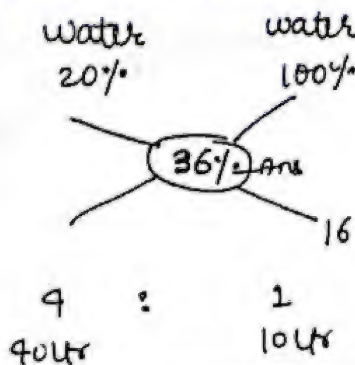 water water
20% 100%
36% Ans
16
4 : 1
40ltr 10ltr